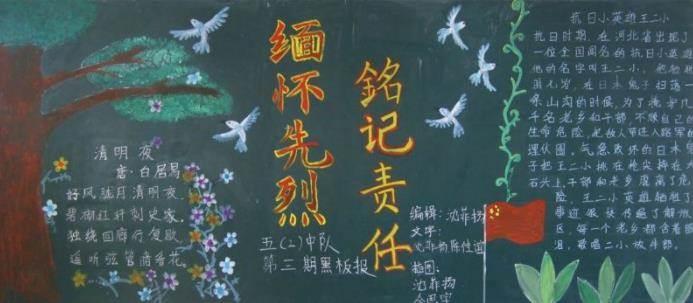 缅怀先烈
銘记责任
清明夜
唐·白居易
好风胧月清明夜,
碧砌红轩刺史家,
独绕回廊行复歇,
遥听弦管暗看花。
五(2)中队
第三期黑板报
编辑:沈菲扬
文字:
沈菲扬陈佳谊
插图:
沈菲扬
抗日小英雄王二小
抗日时期,在河北省出现了
一位全国闻名的抗日小英雄
他的名字叫王二小,
在日本鬼子扫荡一
条山沟的时候,为了掩护几
千名老乡和干部,不顾自己的
生命危险,把敌人带进八路军的
埋伏圈,气急败坏的日本鬼
子把王二小挑在枪尖摔死在
石头上,干部和老乡脱离了危
险,王二小英雄牺牲了
事迹很快传遍了解放
区,每一个老乡都含着眼
泪,歌唱二小放牛郎。